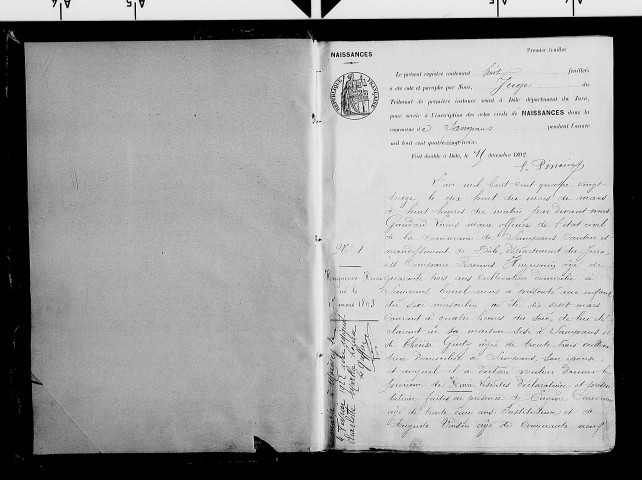 NAISSANCES
Premier feuillet
RÉPUBLIQUE FRANÇAISE
Le présent registre contenant huit feuillets
a été coté et paraphé par Nous, Juge du
Tribunal de première instance séant à Dôle, département du Jura,
pour servir à l'inscription des actes civils de NAISSANCES dans la
commune de Sampans pendant l'année
mil huit cent quatre-vingt-treize.
Fait double à Dôle, le décembre 1892.
L'an mil huit cent quatre vingt
treize le dix huit du mois de mars
à huit heures du matin par devant nous
Gaudard Louis maire officier de l'état civil
de la commune de Sampans canton et
arrondissement de Dôle, département du Jura
est comparu Huguenin âgé de
quarante trois ans cultivateur domicilié à
Sampans, lequel nous a présenté un enfant
du sexe masculin né le dix sept mars
courant à quatre heures du soir, de lui dé
clarant en sa maison sise à Sampans et
de Thérèse âgée de trente trois cultiva
trice domiciliée à Sampans, son épouse
et auquel il a déclaré vouloir donner le
prénom de Henri. Lesdites déclaration et présen
tation faites en présence de
âgé de trente cinq ans, Instituteur et de
Auguste Voisin âgé de cinquante neuf
N° 1
Huguenin Henri
né le
mars 1893
marié à
1922 avec
Charlotte